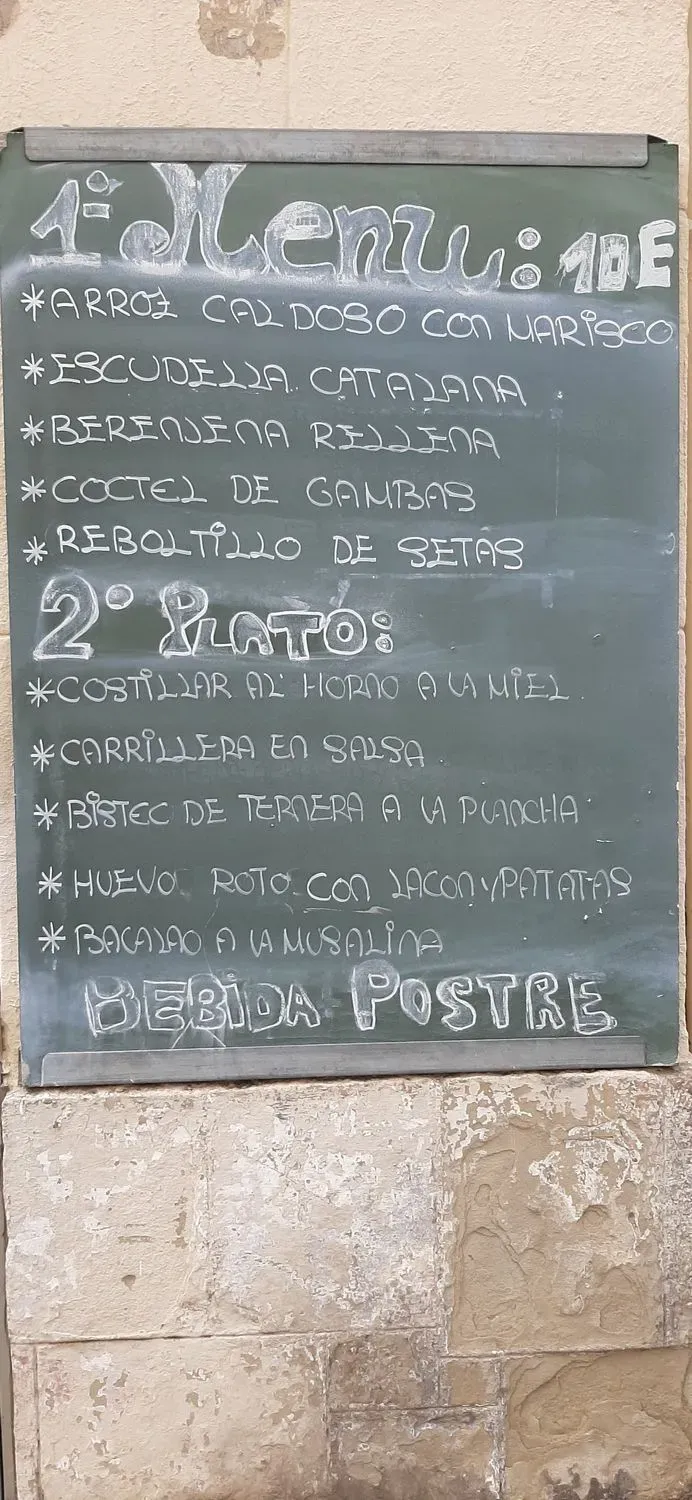 1º Menu: 10E
*ARROZ CALDOSO CON MARISCO
*ESCUDELLA CATALANA
*BERENJENA RELLENA
*COCTEL DE GAMBAS
*REBOLTILLO DE SETAS
2º PLATO:
*COSTILLAR AL HORNO A LA MIEL
*CARRILLERA EN SALSA
*BISTEC DE TERNERA A LA PLANCHA
*HUEVO ROTO CON LACON Y PATATAS
*BACALAO A LA MUSALINA
BEBIDA POSTRE